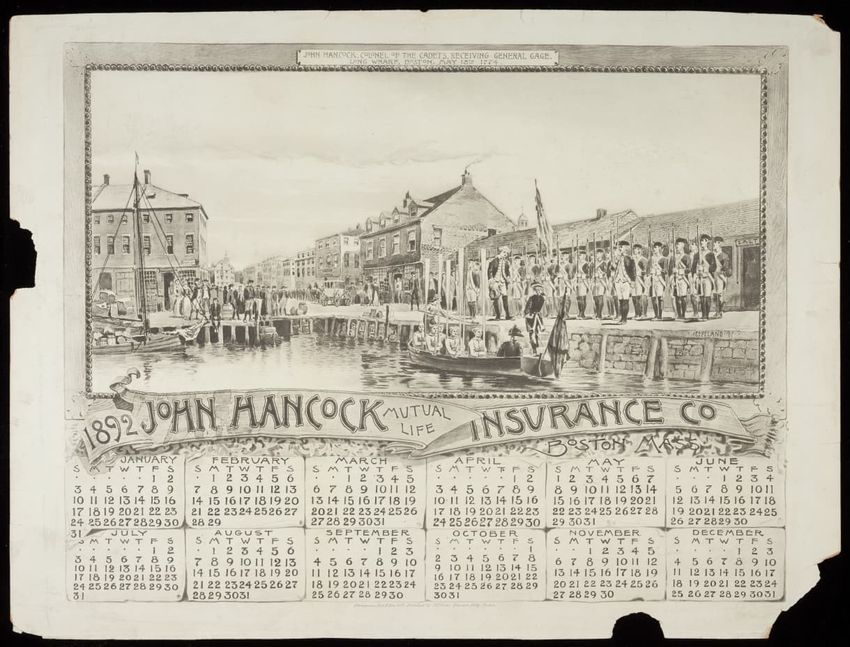 JOHN HANCOCK, COLONEL OF THE CADETS, RECEIVING GENERAL GAGE.
LONG WHARF, BOSTON, MAY 13TH 1774
COPELAND
1892 JOHN HANCOCK MUTUAL LIFE INSURANCE CO
BOSTON MASS
JANUARY
S M T W T F S
1 2
3 4 5 6 7 8 9
10 11 12 13 14 15 16
17 18 19 20 21 22 23
24 25 26 27 28 29 30
31
FEBRUARY
S M T W T F S
1 2 3 4 5 6
7 8 9 10 11 12 13
14 15 16 17 18 19 20
21 22 23 24 25 26 27
28 29
MARCH
S M T W T F S
1 2 3 4 5
6 7 8 9 10 11 12
13 14 15 16 17 18 19
20 21 22 23 24 25 26
27 28 29 30 31
APRIL
S M T W T F S
1 2
3 4 5 6 7 8 9
10 11 12 13 14 15 16
17 18 19 20 21 22 23
24 25 26 27 28 29 30
MAY
S M T W T F S
1 2 3 4 5 6 7
8 9 10 11 12 13 14
15 16 17 18 19 20 21
22 23 24 25 26 27 28
29 30 31
JUNE
S M T W T F S
1 2 3 4
5 6 7 8 9 10 11
12 13 14 15 16 17 18
19 20 21 22 23 24 25
26 27 28 29 30
JULY
S M T W T F S
1 2
3 4 5 6 7 8 9
10 11 12 13 14 15 16
17 18 19 20 21 22 23
24 25 26 27 28 29 30
31
AUGUST
S M T W T F S
1 2 3 4 5 6
7 8 9 10 11 12 13
14 15 16 17 18 19 20
21 22 23 24 25 26 27
28 29 30 31
SEPTEMBER
S M T W T F S
1 2 3
4 5 6 7 8 9 10
11 12 13 14 15 16 17
18 19 20 21 22 23 24
25 26 27 28 29 30
OCTOBER
S M T W T F S
1
2 3 4 5 6 7 8
9 10 11 12 13 14 15
16 17 18 19 20 21 22
23 24 25 26 27 28 29
30 31
NOVEMBER
S M T W T F S
1 2 3 4 5
6 7 8 9 10 11 12
13 14 15 16 17 18 19
20 21 22 23 24 25 26
27 28 29 30
DECEMBER
S M T W T F S
1 2 3
4 5 6 7 8 9 10
11 12 13 14 15 16 17
18 19 20 21 22 23 24
25 26 27 28 29 30 31